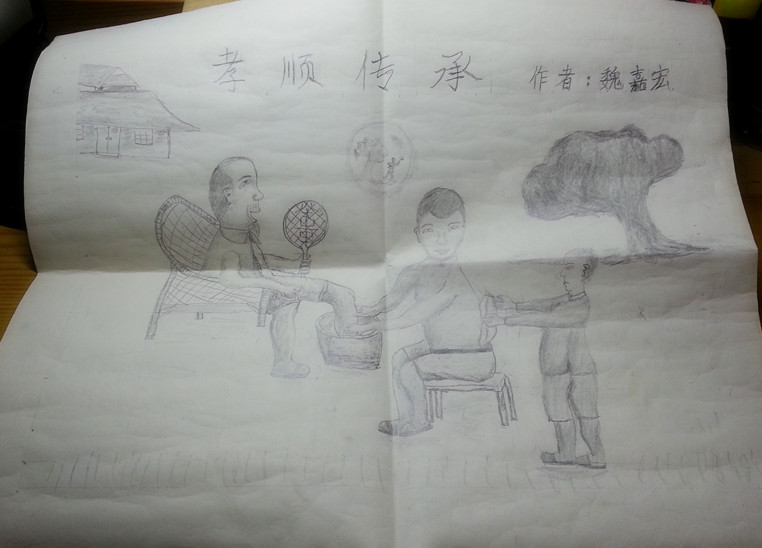 孝顺传承 作者：魏嘉宏